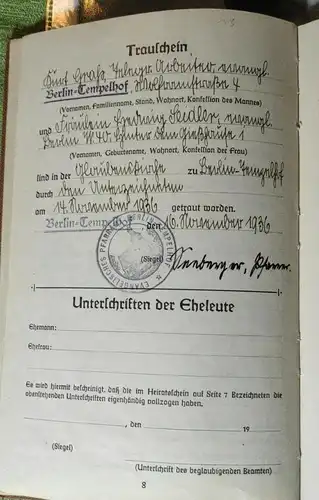 Trauschein
Kurt Grafe, Telegr. Arbeiter, evangl.
Berlin-Tempelhof, Wolframstraße 4
(Vornamen, Familienname, Stand, Wohnort, Konfession des Mannes)
und Fräulein Hedwig Seidler, evangl.
Berlin N. 40. Hinter dem Gießhause 1
(Vornamen, Geburtsname, Wohnort, Konfession der Frau)
sind in der Glaubenskirche zu Berlin-Tempelhof
durch den Unterzeichneten
am 14. November 1936 getraut worden.
Berlin-Tempelhof, den 16. November 1936
(Siegel) Pfarrer.
Unterschriften der Eheleute
Ehemann:
Ehefrau:
Es wird hiermit bescheinigt, daß die im Heiratsschein auf Seite 7 Bezeichneten die
obenstehenden Unterschriften eigenhändig vollzogen haben.
, den 19
(Siegel)
(Unterschrift des beglaubigenden Beamten)
8